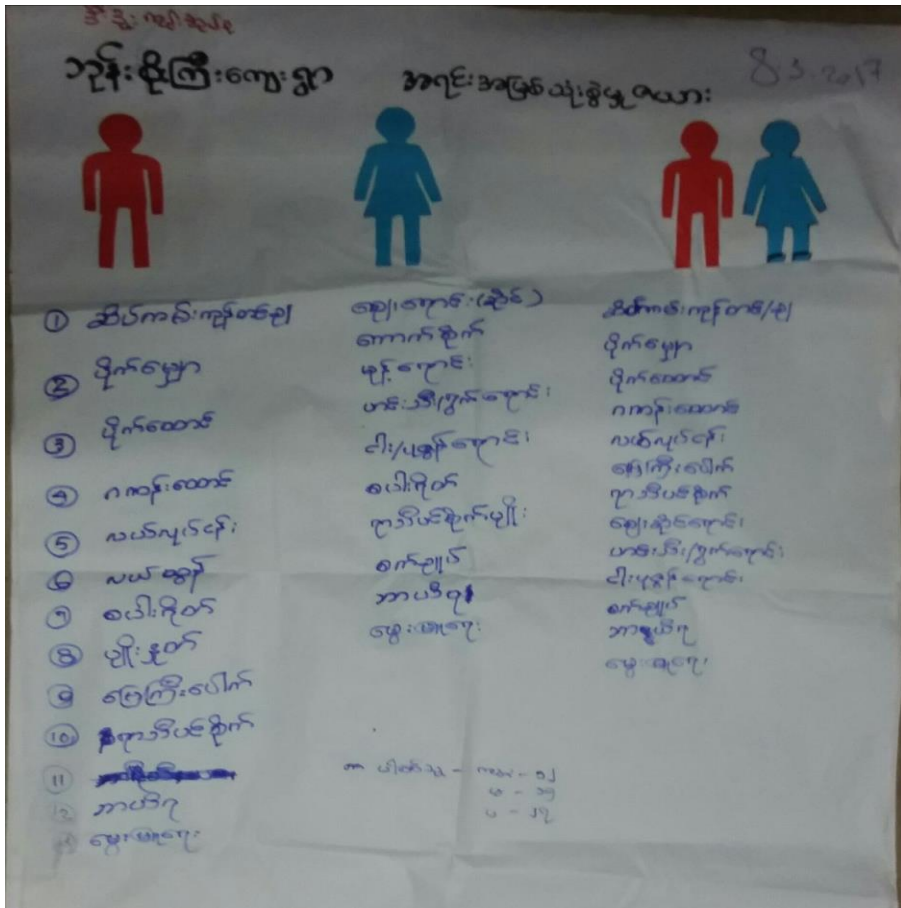 ဘုန်းစိုးကြီးကျေးရွာ အရင်းအမြစ်သုံးစွဲမှုဇယား 8.3.2017
① ဆိပ်ကမ်းကုန်တင်/ချ
② ပိုက်မျှော
③ ပိုက်ထောင်
④ ဂဏန်းထောင်
⑤ လယ်လုပ်ငန်း
⑥ လယ်ထွန်
⑦ စပါးရိတ်
⑧ ပျိုးနှုတ်
⑨ မြေကြီးပေါက်
⑩ ရာသီပင်စိုက်
11
12 ဘာယာရ
မွေးမြူရေး
ဈေးရောင်း(ဆိုင်)
ကောက်စိုက်
မုန့်ရောင်း
ဟင်းသီး/ရွက်ရောင်း
ငါး/ပုစွန်ရောင်း
စပါးရိတ်
ရာသီပင်စိုက်ပျိုး
စက်ချုပ်
မွေးမြူရေး
ဆိပ်ကမ်းကုန်တင်/ချ
ပိုက်မျှော
ပိုက်ထောင်
ဂဏန်းထောင်
လယ်လုပ်ငန်း
မြေကြီးပေါက်
ရာသီပင်စိုက်
ဈေးဆိုင်ရောင်း
ဟင်းသီး/ရွက်ရောင်း
ငါးပုစွန်ရောင်း
စက်ချုပ်
မွေးမြူရေး